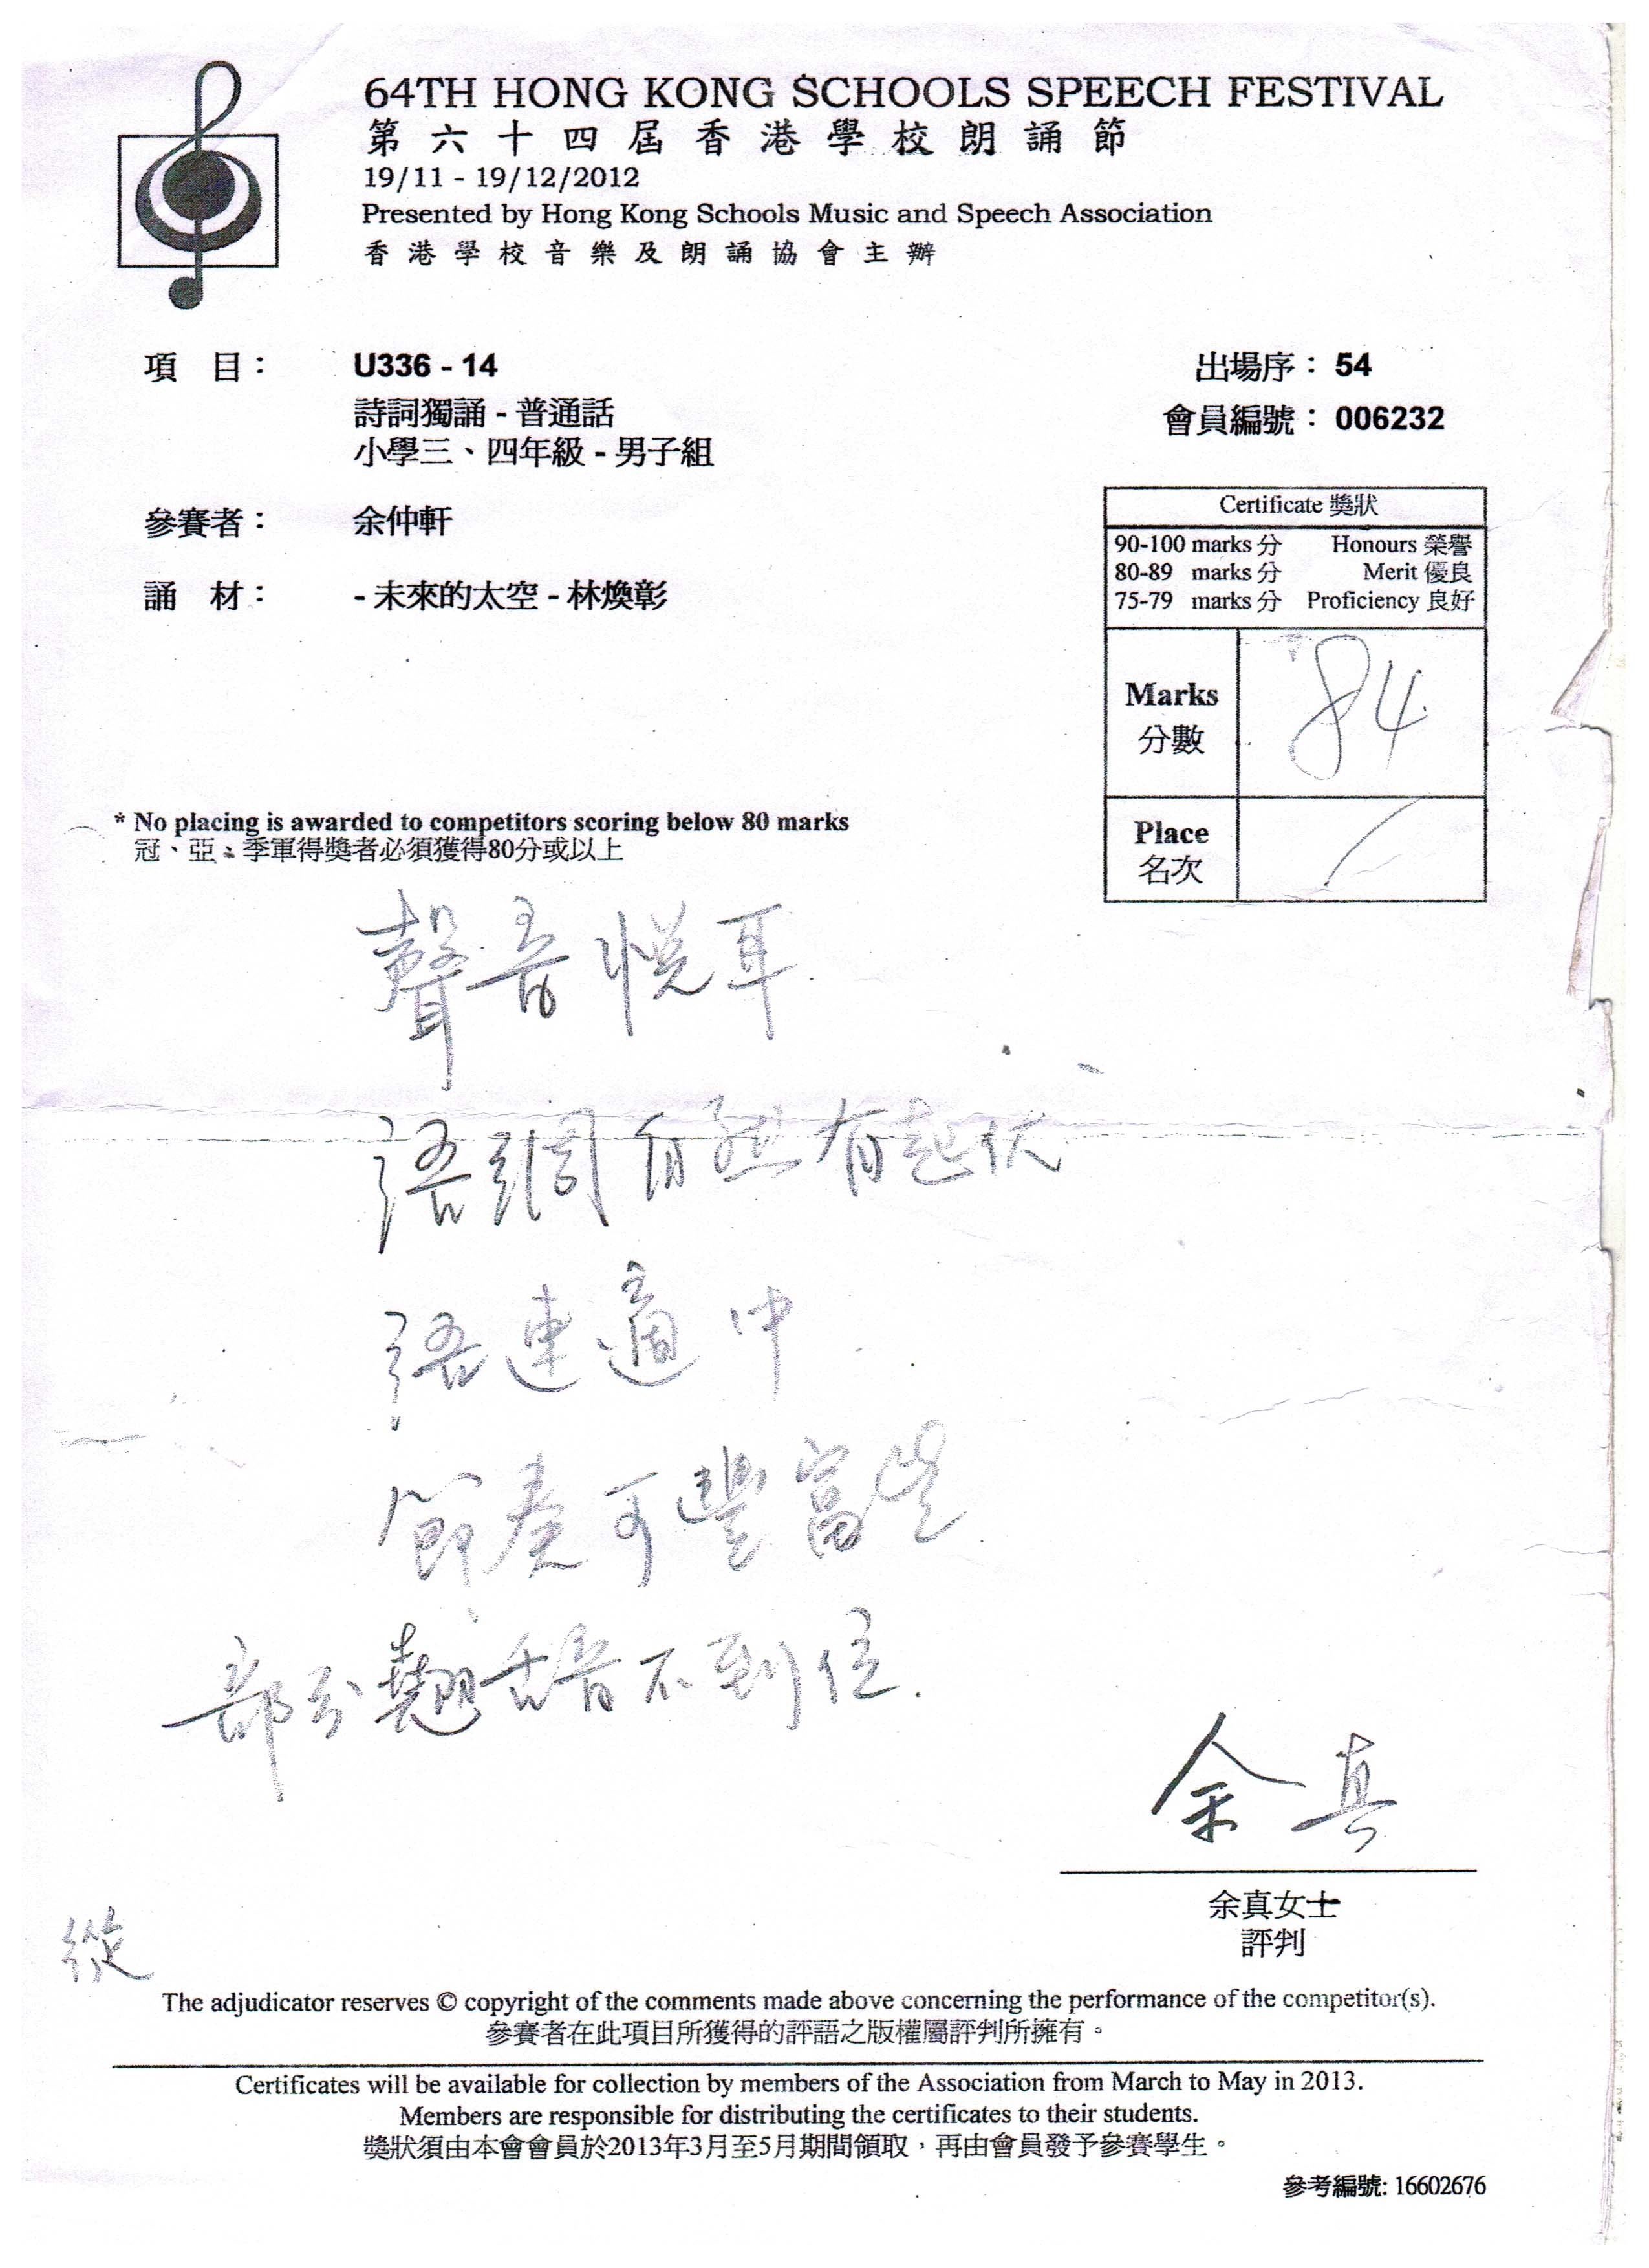 64TH HONG KONG SCHOOLS SPEECH FESTIVAL
第六十四屆香港學校朗誦節
19/11 - 19/12/2012
Presented by Hong Kong Schools Music and Speech Association
香港學校音樂及朗誦協會主辦
項 目： U336 - 14
出場序： 54
詩詞獨誦 - 普通話
會員編號： 006232
小學三、四年級 - 男子組
參賽者： 余仲軒
誦 材： - 未來的太空 - 林煥彰
Certificate 獎狀
90-100 marks 分 Honours 榮譽
80-89 marks 分 Merit 優良
75-79 marks 分 Proficiency 良好
Marks 分數 84
Place 名次 /
* No placing is awarded to competitors scoring below 80 marks
冠、亞、季軍得獎者必須獲得80分或以上
聲音悅耳.
語調自然有起伏
語速適中
節奏可豐富些
部分翹舌音不到位.
余真
余真女士
評判
從
The adjudicator reserves © copyright of the comments made above concerning the performance of the competitor(s).
參賽者在此項目所獲得的評語之版權屬評判所擁有。
Certificates will be available for collection by members of the Association from March to May in 2013.
Members are responsible for distributing the certificates to their students.
獎狀須由本會會員於2013年3月至5月期間領取，再由會員發予參賽學生。
參考編號: 16602676